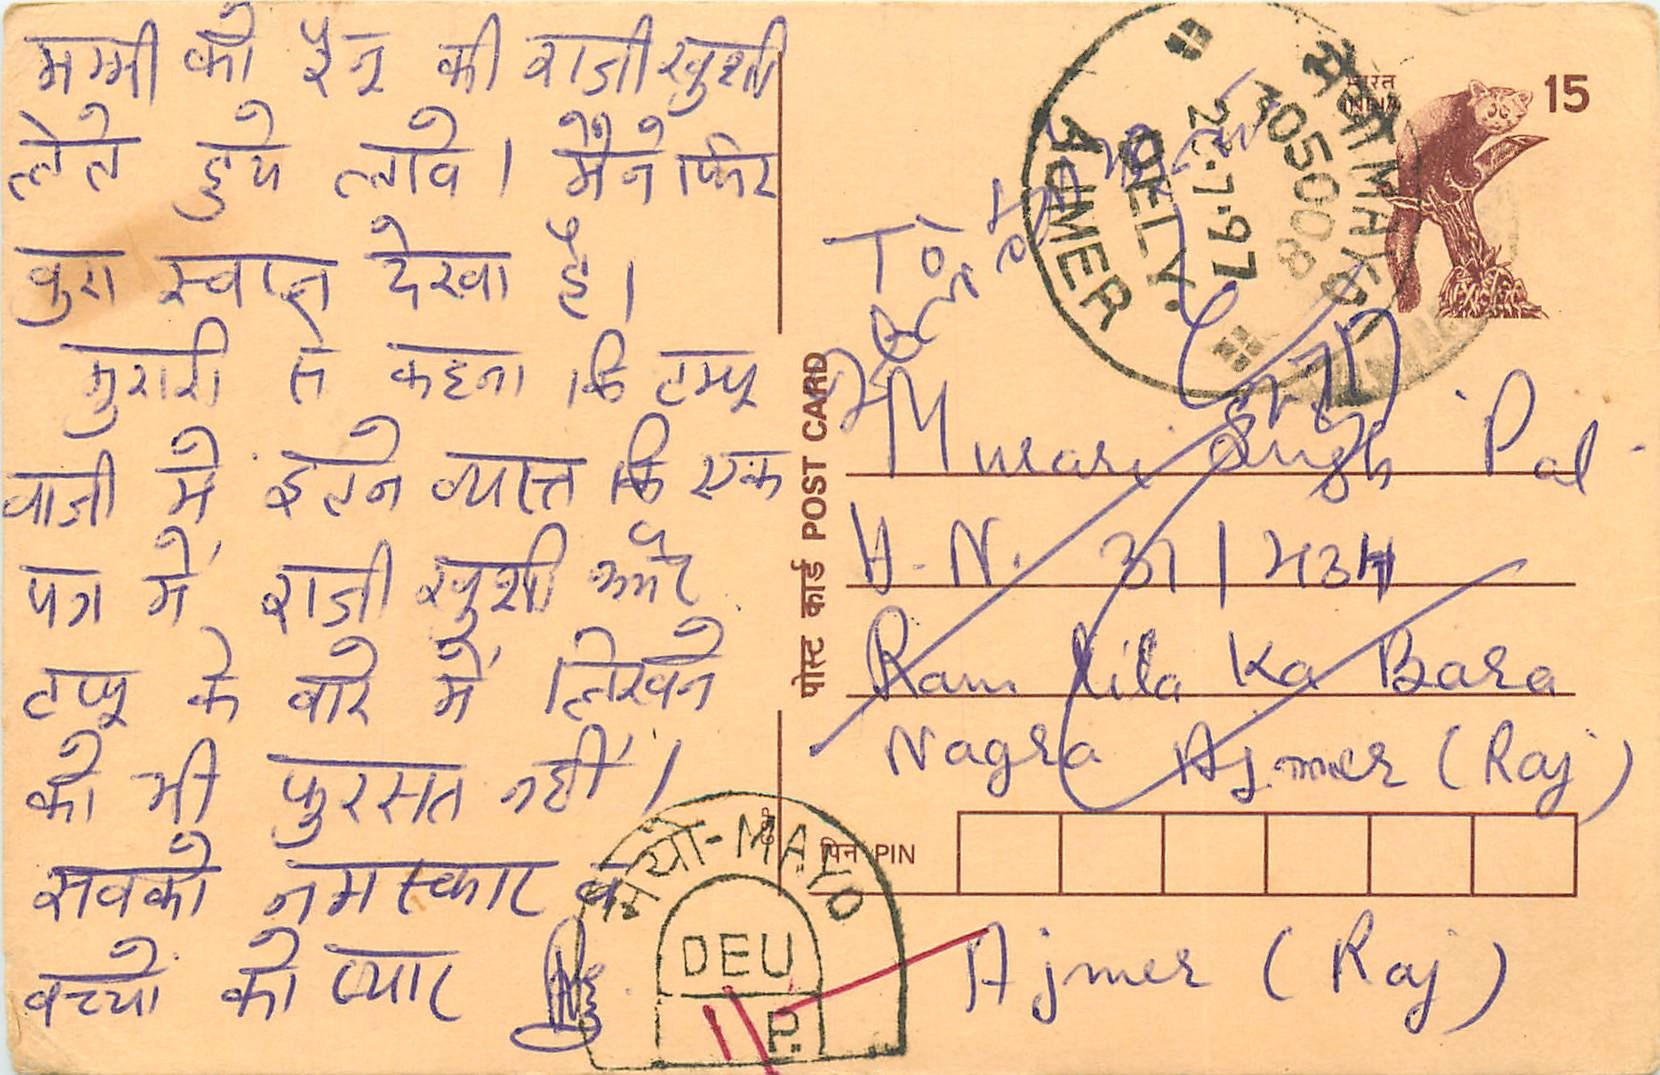 मम्मी को रैनू की राजी खुशी
लेते हुये लावे। मैने फिर
बुरा स्वप्न देखा है।
मुरारी से कहना कि टम्पू
वाजी में इतने व्यस्त कि एक
पत्र में राजी खुशी और
टप्पू के बारे में लिखने
को भी फुरसत नहीं।
सबको नमस्कार व
बच्चो को प्यार
पोस्ट कार्ड POST CARD
भारत
INDIA
15
मेयो MAYO
305008
2.7.97
DELY.
AJMER
To
Murari Singh Pal
H.N. 31/434
Ram lila Ka Bara
Nagra Ajmer (Raj)
पिन PIN
Ajmer (Raj)
मेयो-MAYO
DEU